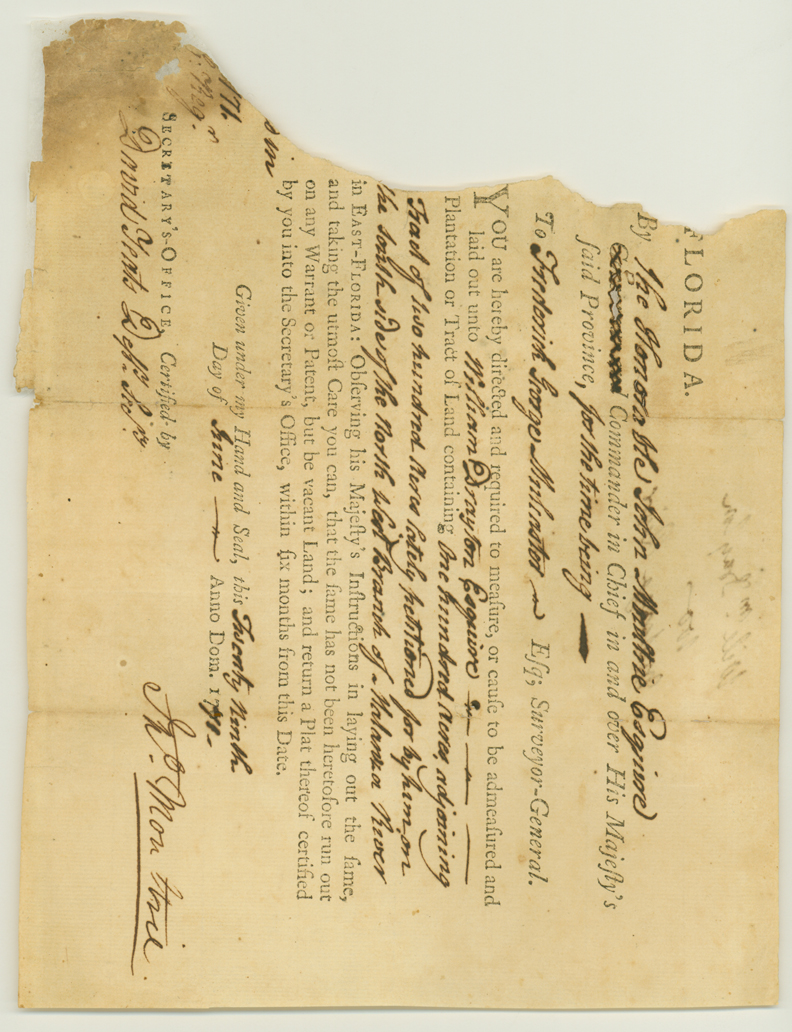 FLORIDA.
By The Honorable John Moultrie Esquire
Commander in Chief in and over His Majeſty's
ſaid Province, for the time being —
To Frederick George Mulcaster Eſq; Surveyor-General.
YOU are hereby directed and required to meaſure, or cauſe to be admeaſured and
laid out unto William Drayton Esquire
Plantation or Tract of Land containing One hundred Acres, adjoining
Tract of two hundred Acres lately petitioned for by him, on
the South side of the North West Branch of Matanza River
in EAST-FLORIDA: Obſerving his Majeſty's Inſtructions in laying out the ſame,
and taking the utmoſt Care you can, that the ſame has not been heretofore run out
on any Warrant or Patent, but be vacant Land; and return a Plat thereof certified
by you into the Secretary's Office, within ſix months from this Date.
Given under my Hand and Seal, this Twenty Ninth
Day of June — Anno Dom. 1771.
Jno. Moultrie.
SECRETARY'S-OFFICE, Certified by
David Yeats Depy. Secry.